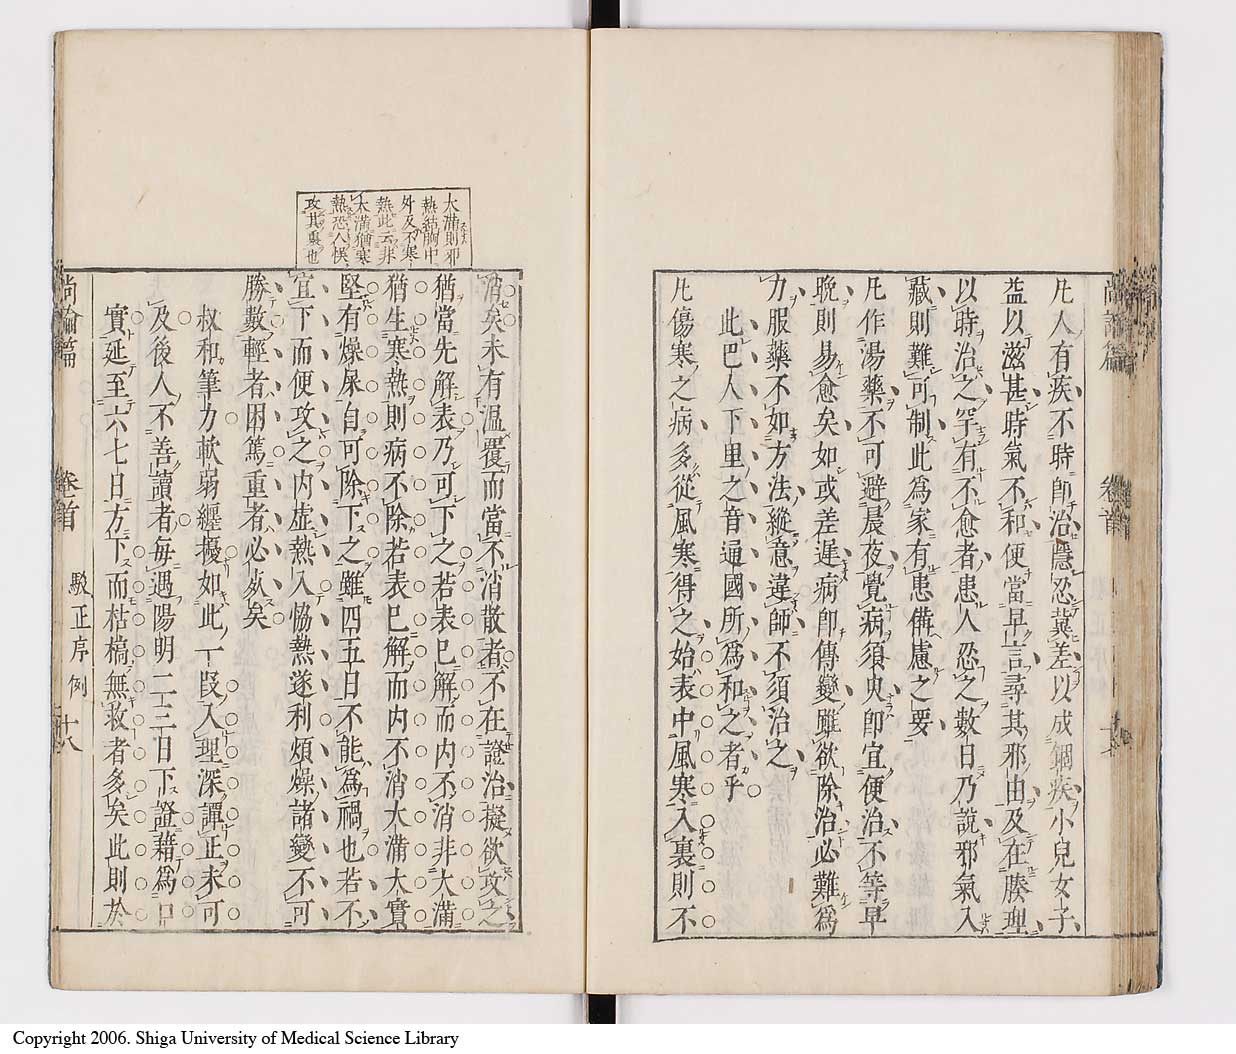 凡人有疾不時即治隱忍冀差以成錮疾小兒女子
益以滋甚時氣不和便當早言尋其邪由及在腠理
以時治之罕有不愈者患人忍之數日乃說邪氣入
藏則難可制此爲家有患備慮之要
凡作湯藥不可避晨夜覺病須臾即宜便治不等早
晩則易愈矣如或差遲病即傳變雖欲除治必難爲
力服藥不如方法縱意違師不須治之
此巴人下里之音通國所爲和之者乎
凡傷寒之病多從風寒得之始表中風寒入裏則不
消矣未有溫覆而當不消散者不在證治擬欲攻之
猶當先解表乃可下之若表已解而内不消非大滿
猶生寒熱則病不除若表已解而内不消大滿大實
堅有燥屎自可除下之雖四五日不能爲禍也若不
宜下而便攻之内虛熱入恊熱遂利煩燥諸變不可
勝數輕者困篤重者必死矣
叔和筆力軟弱纒擾如此一段入理深譚正未可
及後人不善讀者每遇陽明二三日下證藉爲口
實延至六七日方下而枯槁無救者多矣此則於
大滿則邪
熱結胸中
外反不寒
熱此云非
大滿猶寒
熱恐人悞
攻其裏也
尚論篇
卷首
駁正序例
十八
尚論篇
卷首
Copyright 2006. Shiga University of Medical Science Library